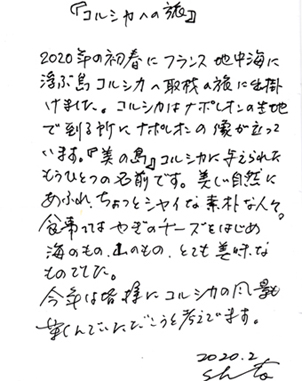 『コルシカへの旅』
2020年の初春にフランス地中海に
浮ぶ島コルシカへ取材の旅に出掛
けました。コルシカはナポレオンの生地
で到る所にナポレオンの像が立って
います。『美の島』コルシカに与えられた
もうひとつの名前です。美しい自然に
あふれ、ちょっとシャイな素朴な人々。
食事ではやぎのチーズをはじめ
海のもの、山のもの、とても美味な
ものでした。
今年は皆様にコルシカの風景を
楽しんでいただこうと考えてます。
2020.2